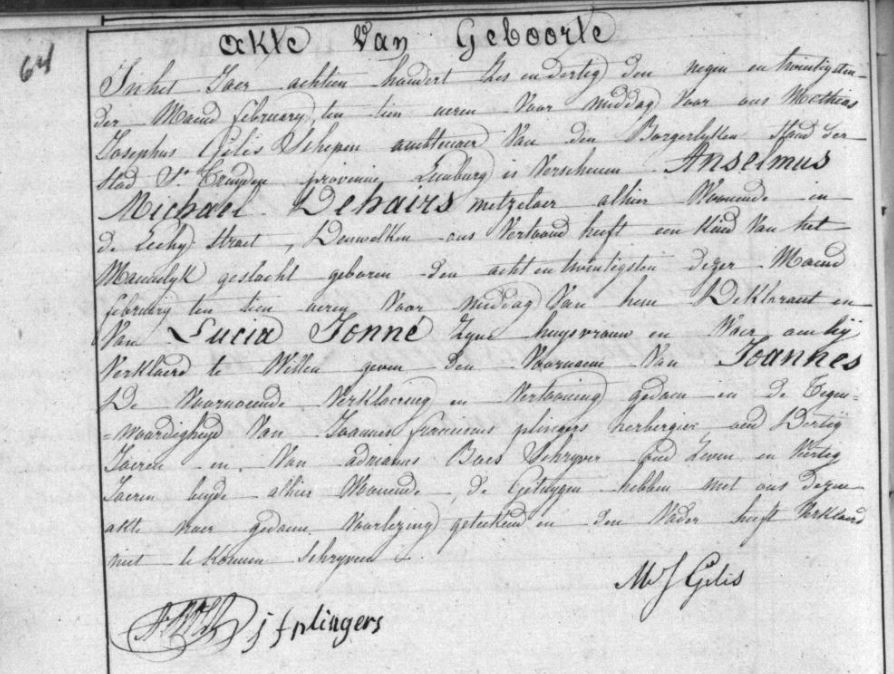 64
Akte Van Geboorte
In het Jaer achtien hondert Zes en dertig den negen en twintigsten
der Maend february ten tien ueren Voor middag Voor ons Mathias
Josephus Gilis Schepen ambtenaer Van den Borgerlyken Stand der
Stad St Truyden provincie Limburg is Verschenen Anselmus
Michael Dehairs metzelaer alhier Woonende in
de straet, Denwelken ons Vertoond heeft een Kind Van het
Mannelyk geslacht geboren den acht en twintigsten dezer Maend
february ten tien ueren Voor middag Van hem Deklarant en
Van Lucia Jonné Zyne huysvrouw en Waer aen hy
Verklaerd te Willen geven den Voornaem Van Joannes
De Voornoemde Verklaering en Vertooning gedaen in de Tegen=
=woordigheyd Van Joannes franciscus plingers herbergier oud Dertig
Jaeren en Van adrianus Baes Schryver oud Zeven en Viertig
Jaeren beyde alhier Woonende, de Getuygen hebben met ons dezen
akte naer gedaene Voorlezing geteekend en den Vader heeft Verklaerd
niet te konnen Schryven
M J Gilis
j f plingers